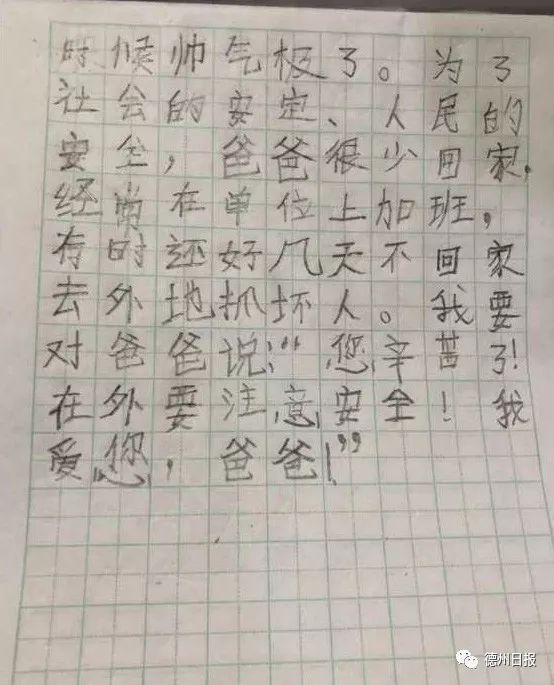 时候帅气极了。为了
社会的安定、人民的
安全，爸爸很少回家，
经常在单位上加班，
有时还好几天不回家
去外地抓坏人。我要
对爸爸说：“您辛苦了！
在外要注意安全！我
爱您，爸爸！”
德州日报